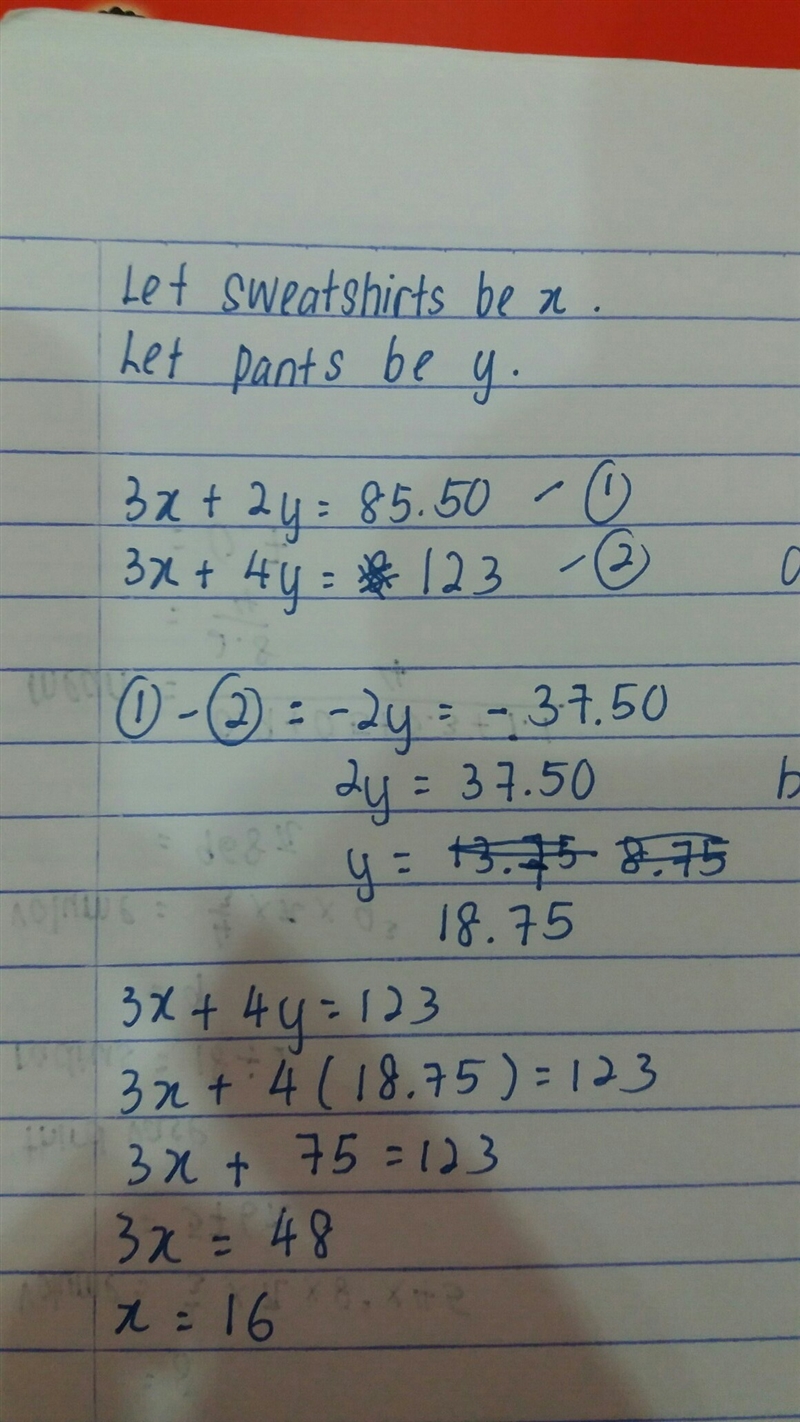 Let sweatshirts be x.
Let pants be y.
3x + 2y = 85.50 - ①
3x + 4y = 123 - ②
① - ② = -2y = -37.50
2y = 37.50
y = 13.75 8.75
18.75
3x + 4y = 123
3x + 4(18.75) = 123
3x + 75 = 123
3x = 48
x = 16